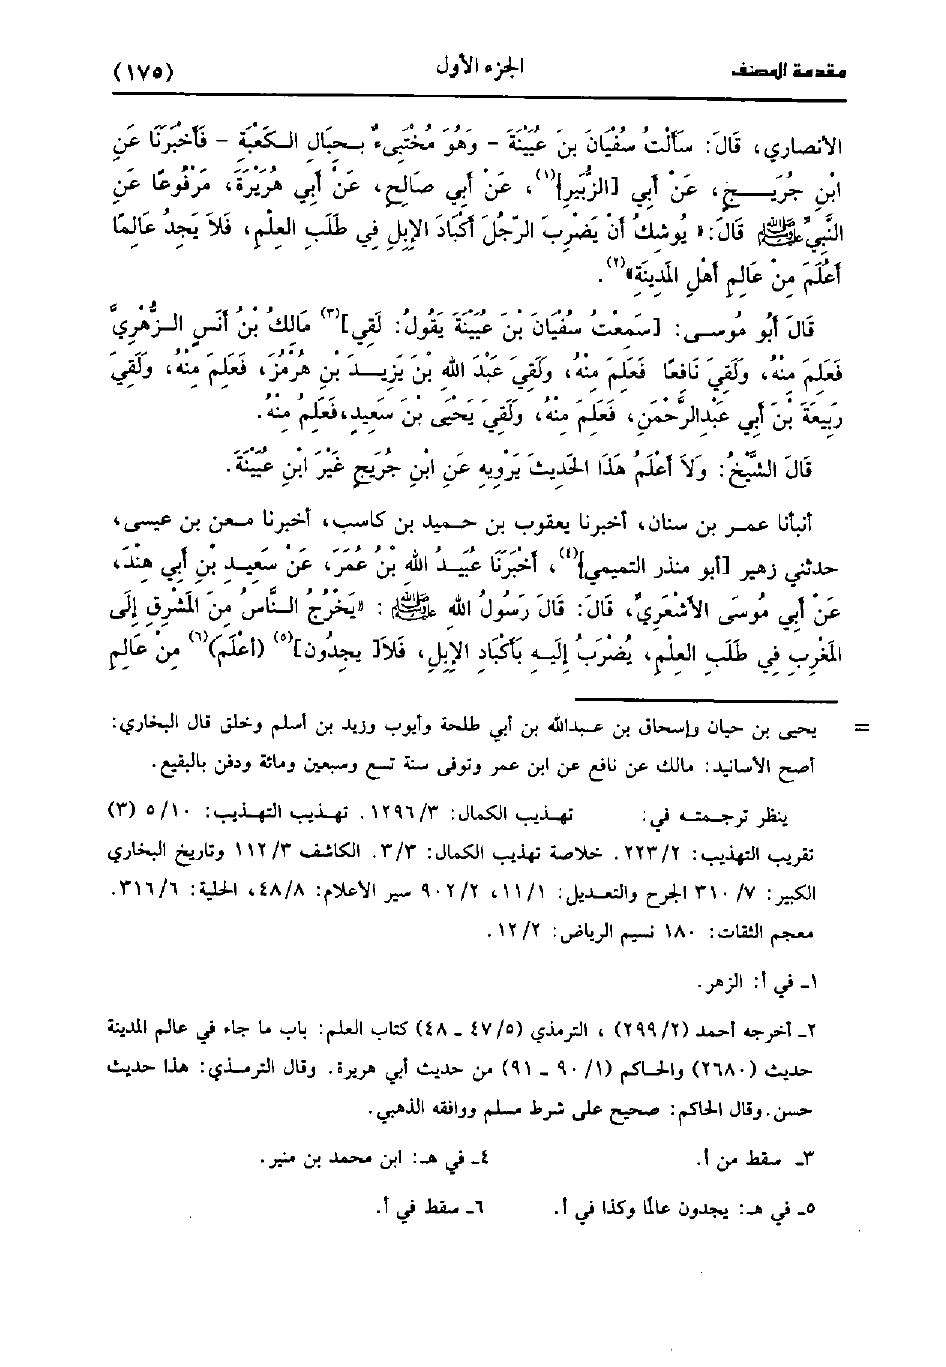 مقدمة المصنف الجزء الأول (١٧٥)
الأنصاري، قَالَ: سَأَلْتُ سُفْيَانَ بنَ عُيَيْنَةَ - وَهُوَ مُخْتَبِيءٌ بِحِبَالِ الكَعْبَةِ - فَأَخْبَرَنَا عَنِ
ابْنِ جُرَيْجٍ، عَنْ أَبي [الزُّبَيرِ](١)، عَنْ أَبي صَالِحٍ، عَنْ أَبي هُرَيْرَةَ، مَرْفُوعًا عَنِ
النَّبِيِّ ﷺ قَالَ: « يُوشِكُ أَنْ يَضْرِبَ الرَّجُلَ أَكْبَادَ الإِبِلِ فِي طَلَبِ العِلْمِ، فَلاَ يَجِدُ عَالِمًا
أَعْلَمَ مِنْ عَالِمِ أَهْلِ المَدِينَةِ»(٢).
قَالَ أَبُو مُوسَى: [سَمِعْتُ سُفْيَانَ بْنَ عُيَيْنَةَ يَقُولُ: لَقِي](٣) مَالِكُ بْنُ أَنَسٍ الزُّهْرِيَّ
فَعَلِمَ مِنْهُ، وَلَقِيَ نَافِعًا فَعَلِمَ مِنْهُ، وَلَقِيَ عَبْدَ اللهِ بْنَ يَزِيدَ بْنِ هُرْمُزَ، فَعَلِمَ مِنْهُ، وَلَقِيَ
رَبِيعَةَ بْنَ أَبي عَبْدِالرَّحْمَنِ، فَعَلِمَ مِنْهُ، وَلَقِيَ يَحْيَى بْنَ سَعِيدٍ،فَعَلِمَ مِنْهُ.
قَالَ الشَّيْخُ: وَلاَ أَعْلَمُ هَذَا الحَدِيثَ يَرْوِيهِ عَنِ ابْنِ جُرَيجٍ غَيْرَ ابْنِ عُيَيْنَةَ.
أنبأنا عمر بن سنان، أخبرنا يعقوب بن حميد بن كاسب، أخبرنا معن بن عيسى،
حدثني زهير [أبو منذر التميمي](٤)، أَخْبَرَنَا عُبَيْدُ اللهِ بْنُ عُمَرَ، عَنْ سَعِيدِ بْنِ أَبي هِنْدَ،
عَنْ أَبي مُوسَى الأَشْعَرِيِّ، قَالَ: قَالَ رَسُولُ اللهِ ﷺ : «يَخْرُجُ النَّاسُ مِنَ المَشْرِقِ إِلَى
المَغْرِبِ فِي طَلَبِ العِلْمِ، يُضْرَبُ إِلَيهِ بَأَكْبَادِ الإِبِلِ، فَلاَ[ يجِدُون](٥) (أَعْلَمَ)(٦) مِنْ عَالِمِ
= يحيى بن حيان وإسحاق بن عبدالله بن أبي طلحة وأيوب وزيد بن أسلم وخلق قال البخاري:
أصح الأسانيد: مالك عن نافع عن ابن عمر وتوفى سنة تسع وسبعين ومائة ودفن بالبقيع.
ينظر ترجمته في: تهذيب الكمال: ١٢٩٦/٣. تهذيب التهذيب: ٥/١٠ (٣)
تقريب التهذيب: ٢٢٣/٢. خلاصة تهذيب الكمال: ٣/٣. الكاشف ١١٢/٣ وتاريخ البخاري
الكبير: ٣١٠/٧ الجرح والتعديل: ١١/١، ٩٠٢/٢ سير الأعلام: ٤٨/٨، الحلية: ٣١٦/٦.
معجم الثقات: ١٨٠ نسيم الرياض: ١٢/٢.
١ـ في أ: الزهر.
٢ـ أخرجه أحمد (٢٩٩/٢) ، الترمذي (٤٧/٥ ـ ٤٨) كتاب العلم: باب ما جاء في عالم المدينة
حديث (٢٦٨٠) والحاكم (٩٠/١ ـ ٩١) من حديث أبي هريرة. وقال الترمذي: هذا حديث
حسن.وقال الحاكم: صحيح على شرط مسلم ووافقه الذهبي.
٣ـ سقط من أ. ٤ـ في هـ: ابن محمد بن منير.
٥ـ في هـ: يجدون عالمًا وكذا في أ. ٦ـ سقط في أ.